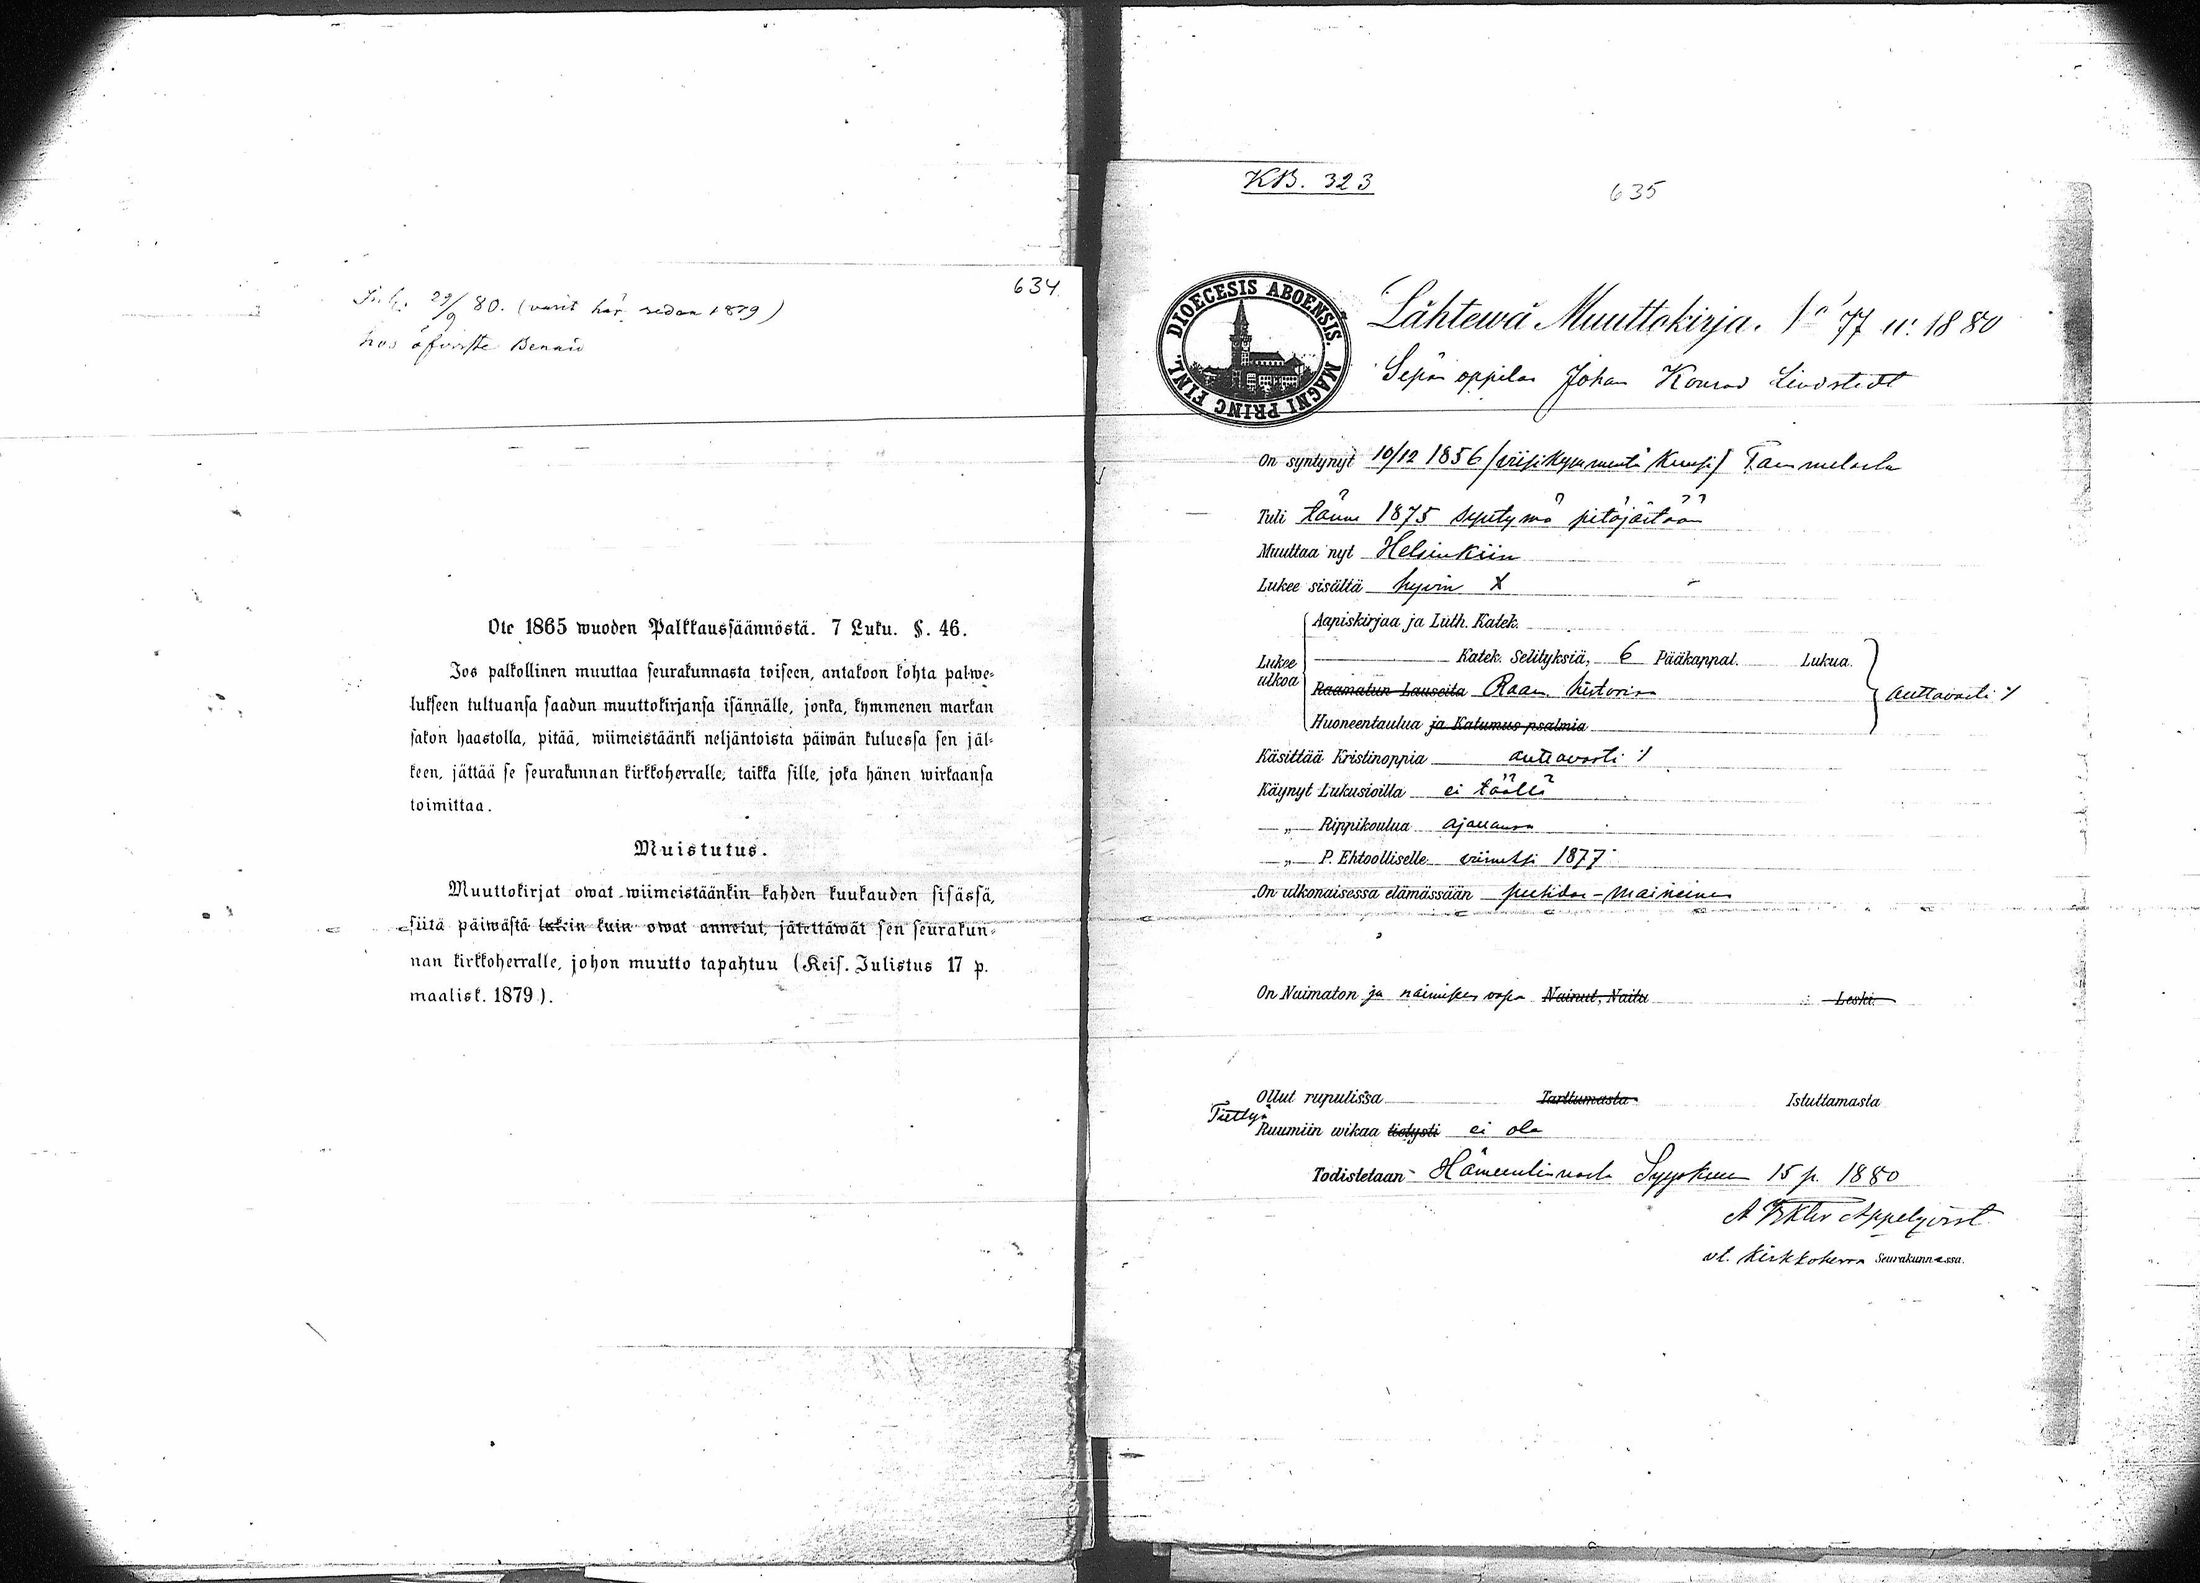 634
Ink. 29/9 80. (varit här sedan 1879)
hos öfverste
Ote 1865 wuoden Palkkaussäännöstä. 7 Luku. §. 46.
Jos palkollinen muuttaa seurakunnasta toiseen, antakoon kohta palwe-
lukseen tultuansa saadun muuttokirjansa isännälle, jonka, kymmenen markan
sakon haastolla, pitää, wiimeistäänki neljäntoista päiwän kuluessa sen jäl-
keen, jättää se seurakunnan kirkkoherralle, taikka sille, joka hänen wirkaansa
toimittaa.
Muistutus.
Muuttokirjat owat wiimeistäänkin kahden kuukauden sisässä,
siitä päiwästä lukein kuin owat annetut, jätettäwät sen seurakun-
nan kirkkoherralle, johon muutto tapahtuu (Keis. Julistus 17 p.
maalisk. 1879).
KB. 323
635
DIOECESIS ABOENSIS. MAGNI PRINC FINL.
Lähtewä Muuttokirja. No 77 v. 1880
Sepän oppilas Johan Konrad Lindstedt
On syntynyt 10/12 1856 (viisikymmentä kuusi) Tammelasta
Tuli tänne 1875 syntymä pitäjästään
Muuttaa nyt Helsinkiin
Lukee sisältä hyvin X
Lukee ulkoa
Aapiskirjaa ja Luth. Katek.
Katek. Selityksiä, 6 Pääkappal. Lukua.
Raamatun Lauseita Raam. historiaa
auttavasti
Huoneentaulua ja Katumus psalmia
Käsittää Kristinoppia auttavasti
Käynyt Lukusioilla ei täällä
„ Rippikoulua ajallansa
„ P. Ehtoolliselle viimeksi 1877
On ulkonaisessa elämässään puhdas-maineinen
On Naimaton ja naimiseen vapa Nainut, Naitu Leski.
Ollut rupulissa Tarttumasta Istuttamasta
Tiettyä
Ruumiin wikaa tietysti ei ole
Todistetaan Hämeenlinnasta Syyskuun 15 p. 1880
A Viktor Appelqvist
vt. Kirkkoherra Seurakunnassa.